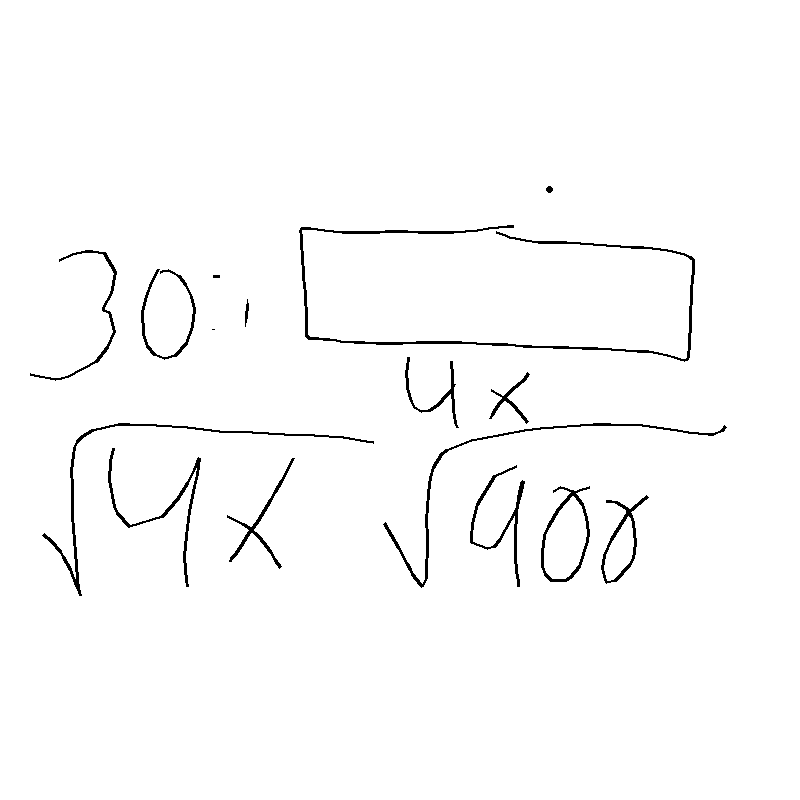 30:
4x
√4x √900